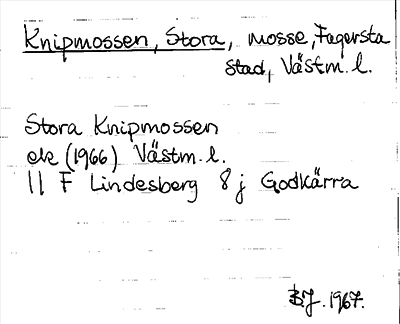 Knipmossen, Stora, mosse, Fagersta
stad, Västm. l.
Stora Knipmossen
ek (1966) Västm. l.
11 F Lindesberg 8 j Godkärra
B.J. 1967.